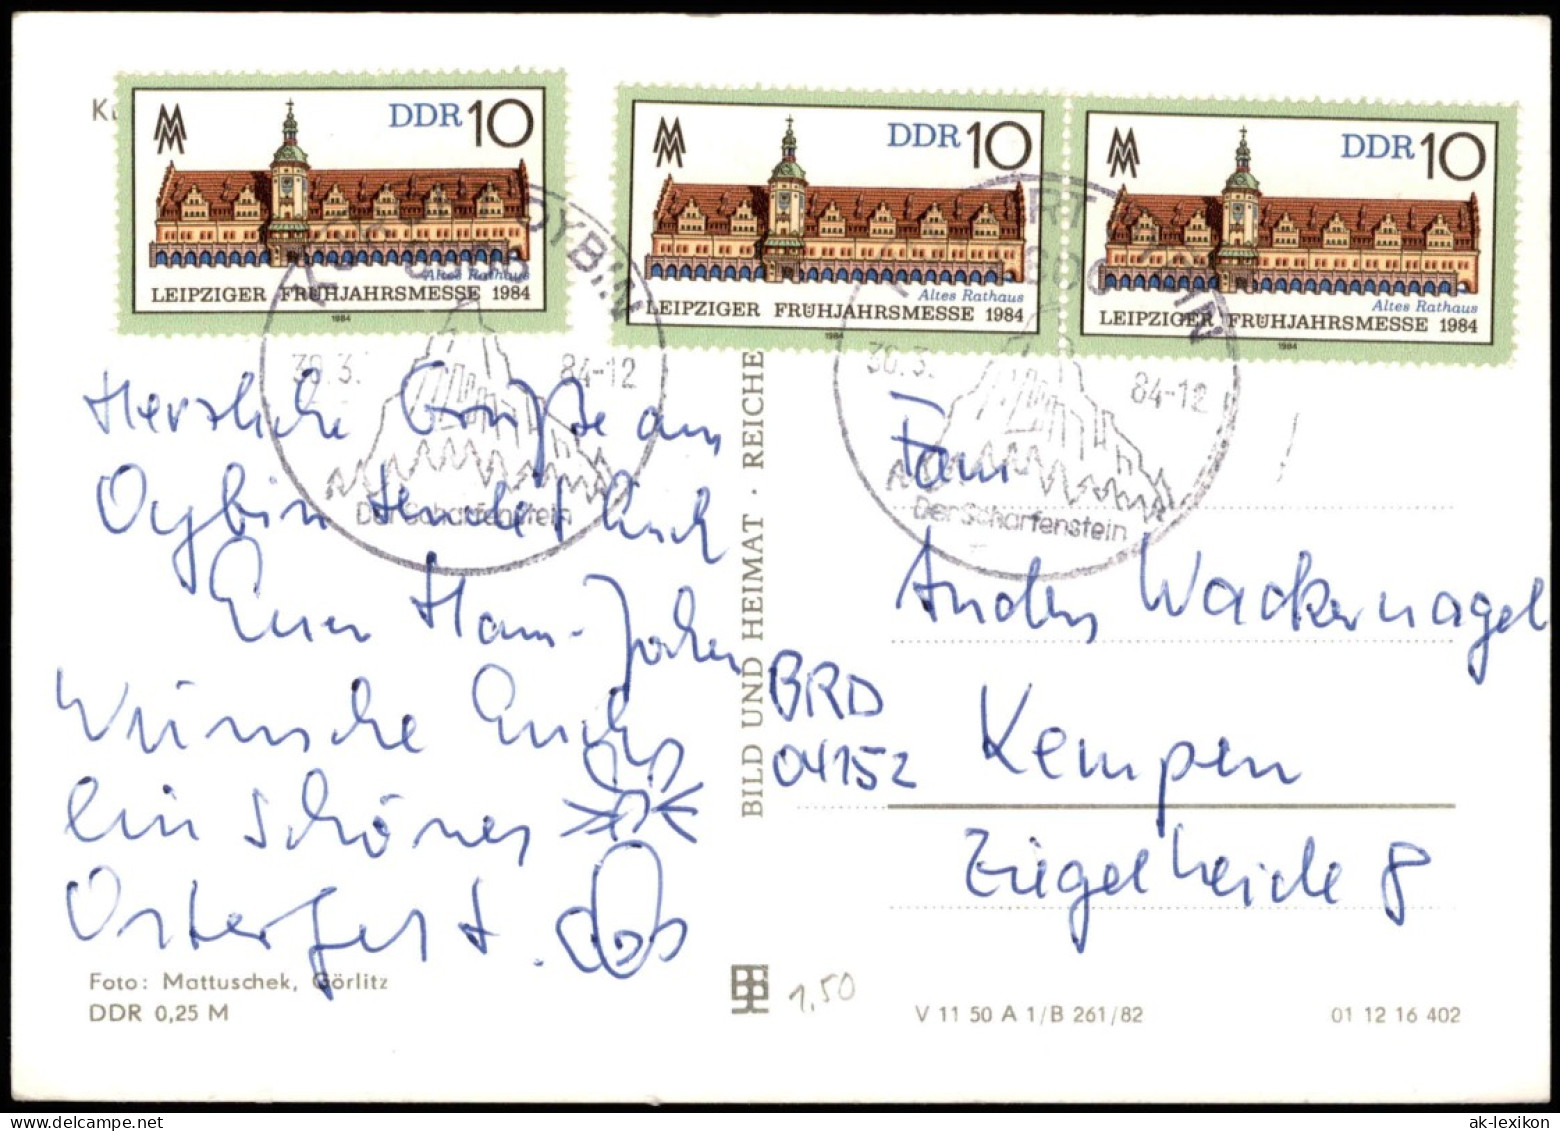 DDR 10
LEIPZIGER FRÜHJAHRSMESSE 1984
Altes Rathaus
1984
DDR 10
LEIPZIGER FRÜHJAHRSMESSE 1984
Altes Rathaus
1984
DDR 10
LEIPZIGER FRÜHJAHRSMESSE 1984
Altes Rathaus
1984
KURORT OYBIN
30.3. 84-12
Der Scharfenstein
KURORT OYBIN
8806
30.3. 84-12
Der Scharfenstein
Herzliche Grüße aus
Oybin sendet Euch
Euer Hans-Jochen
Wünsche Euch
ein schönes
Osterfest.
BILD UND HEIMAT · REICHE
Fam
Anders Wackernagel
BRD
04152
Kempen
Ziegelheide 8
Foto: Mattuschek, Görlitz
DDR 0,25 M
1,50
V 11 50 A 1/B 261/82
01 12 16 402
ak-lexikon